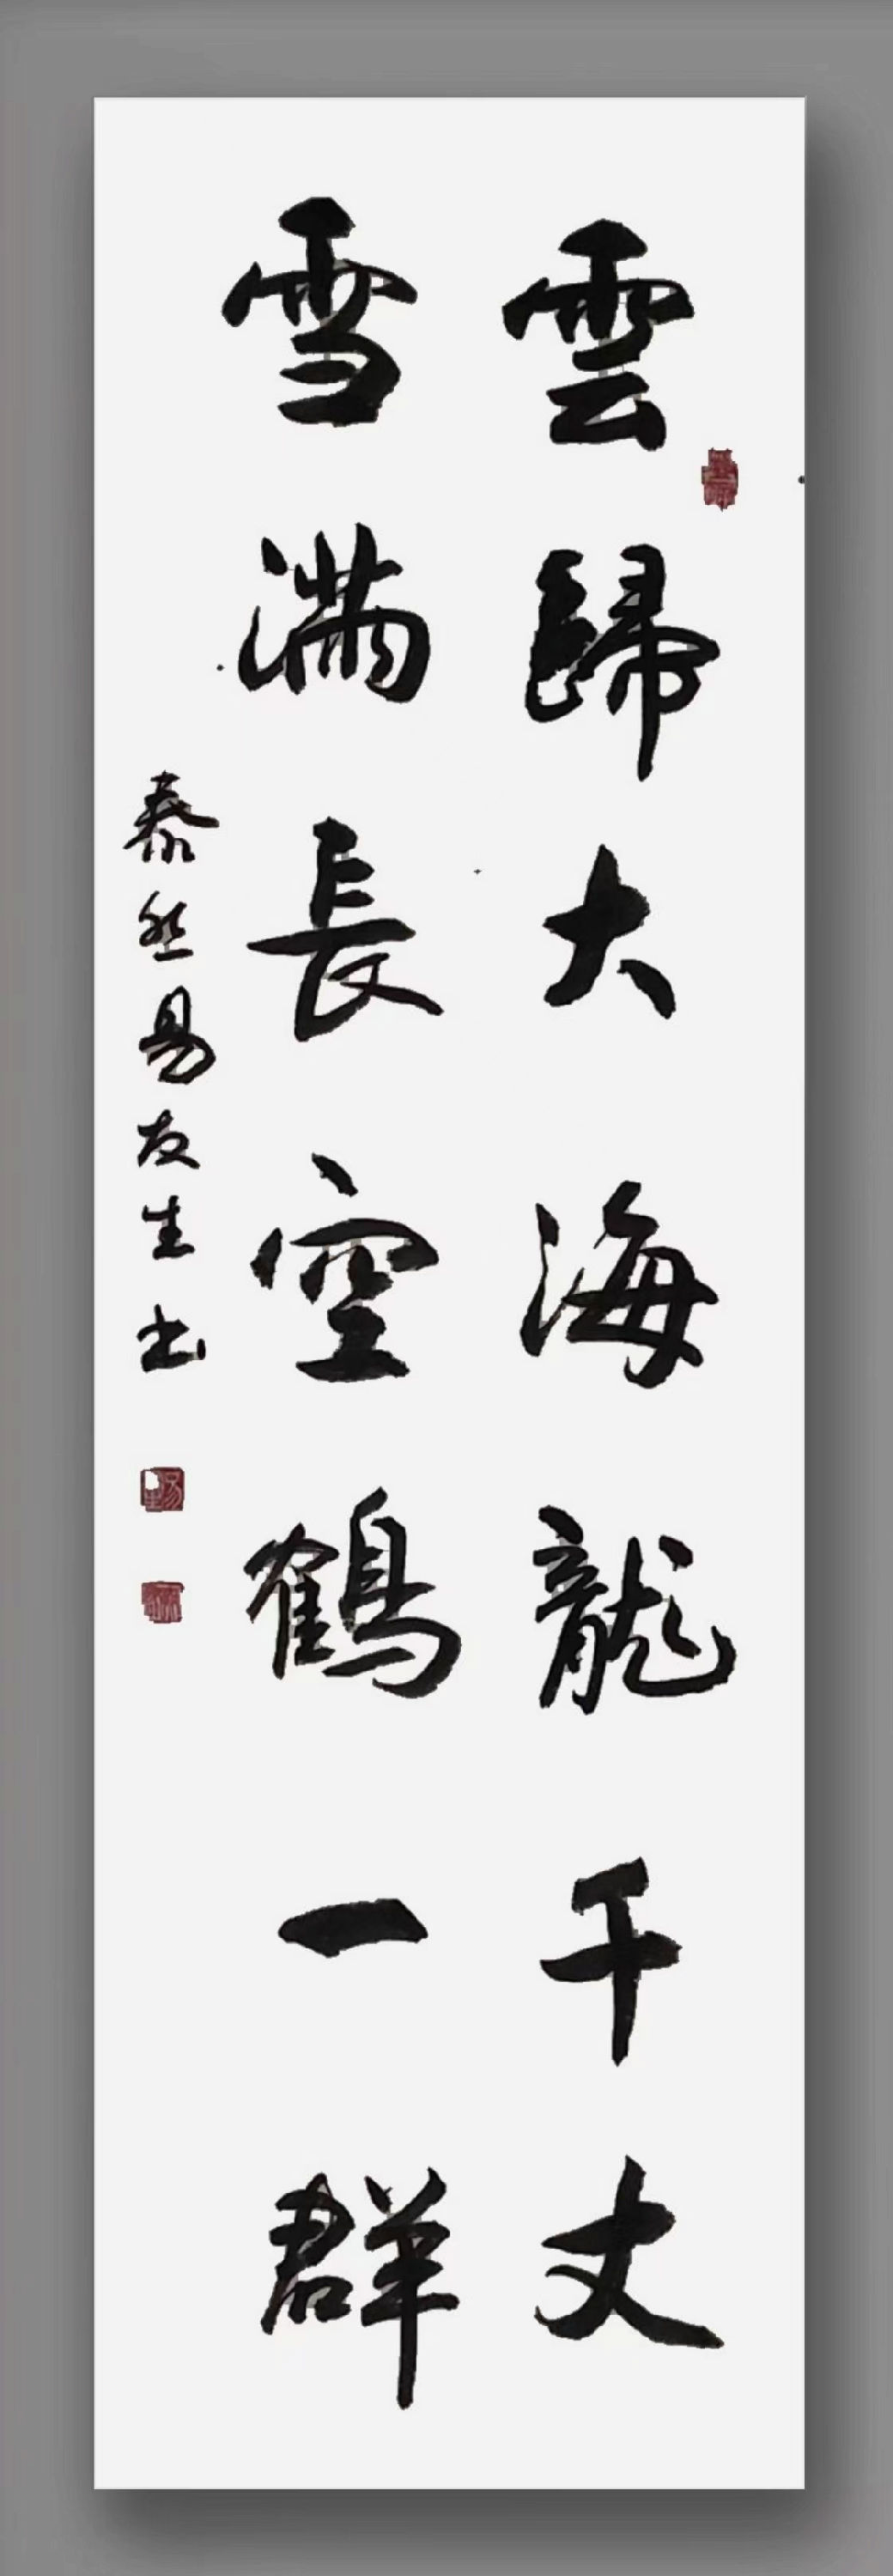 雲歸大海龍千丈
雪滿長空鶴一群
泰然易友生书